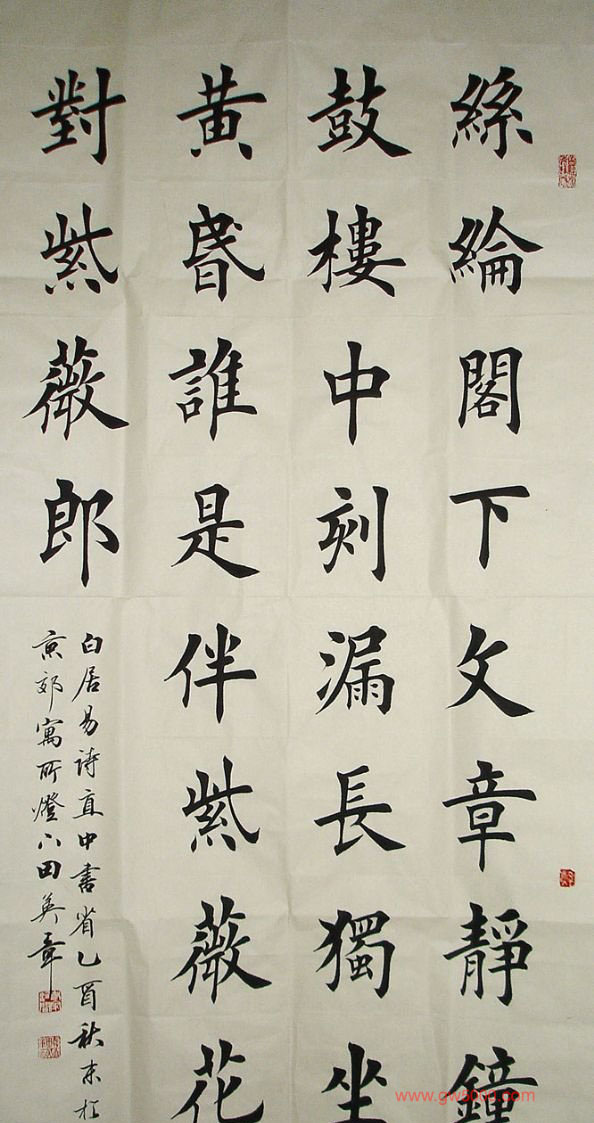 絲綸閣下文章靜鐘
鼓樓中刻漏長獨坐
黃昏誰是伴紫薇花
對紫薇郎
白居易詩直中書省乙酉秋末於
京郊寓所燈下田英章
www.gw5000.com